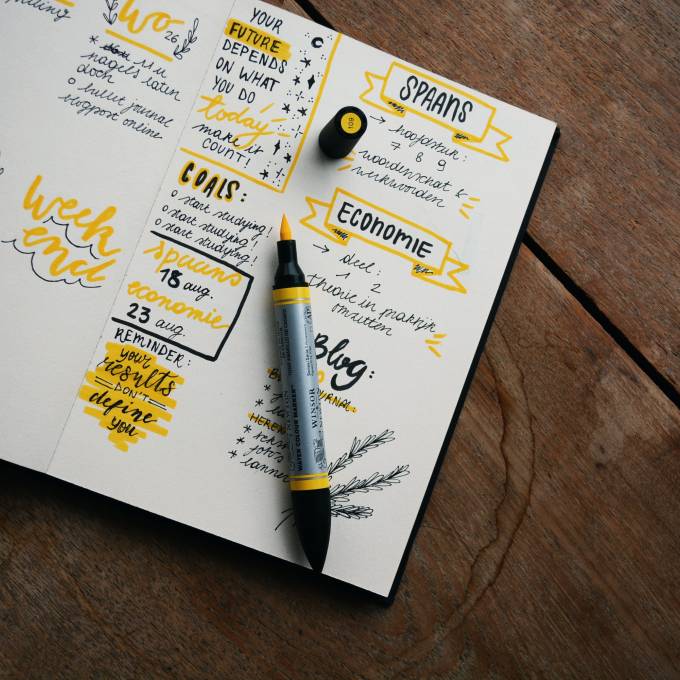 WO.
26
nagels laten
doen
o bullet journal
blogpost online
week
end
YOUR
FUTURE
DEPENDS
ON WHAT
YOU DO
today
make it
COUNT!
GOALS:
o start studying!
o start studying!
o start studying!
spaans
18 aug.
economie
23 aug.
REMINDER:
your
results
DON'T
define
you
SPAANS
→ hoofdstuk:
7 8 9
woordenschat &
werkwoorden
ECONOMIE
→ deel:
1 2
theorie in praktijk
omzetten
Blog:
WATER COLOUR MARKER
WINSOR
609